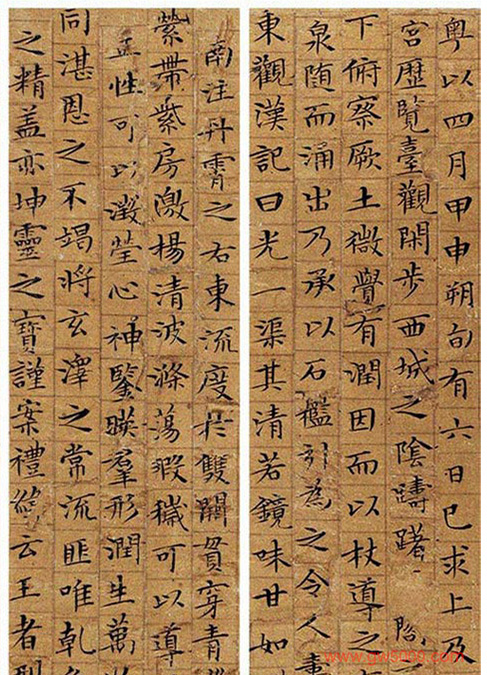 粤以四月甲申朔旬有六日己求上及
宮歷覽臺觀閑步西城之陰躊躇
下俯察厥土微覺有潤因而以杖導之
泉随而涌出乃承以石檻引為之令人
東觀漢記曰光一渠其清若鏡味甘如
南注丹霄之右東流度於雙闕貫穿青
縈帶紫房激楊清波滌蕩瑕穢可以導
性可以澂瑩心神鑒暎羣形潤生萬
同湛恩之不竭將玄澤之常流匪唯乾
之精盖亦坤靈之寶謹案禮緯云王者